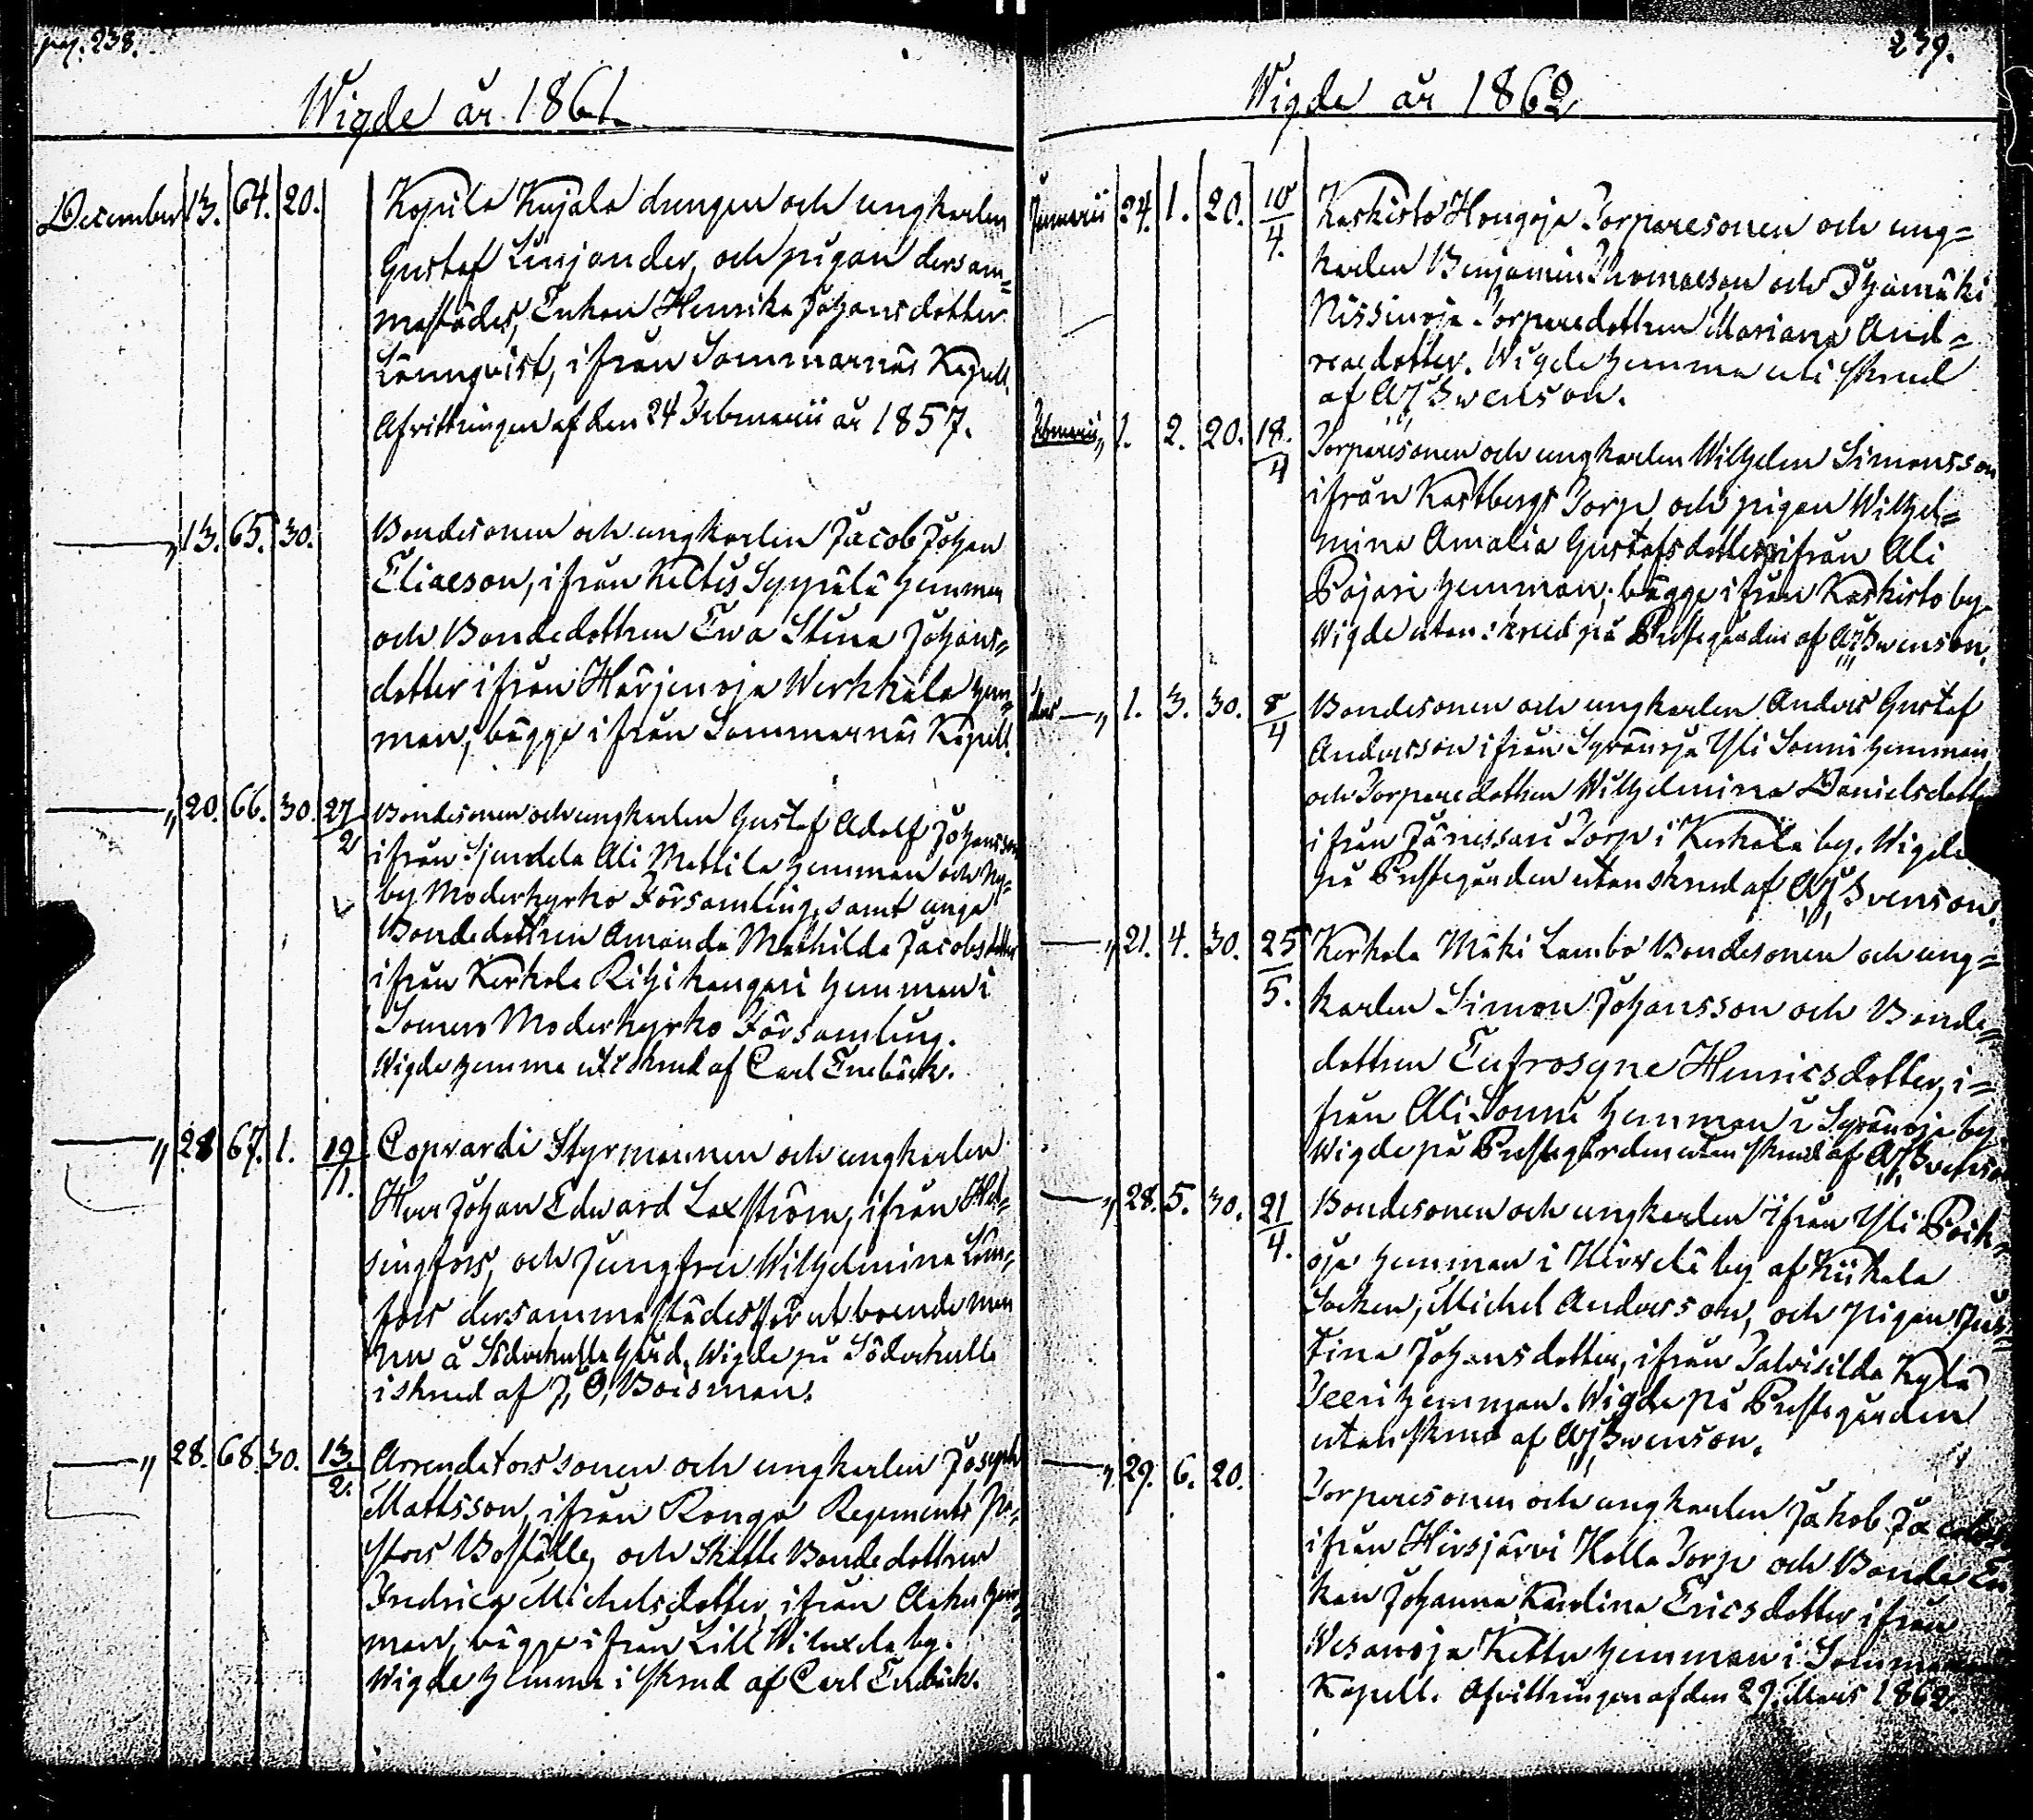 pag. 238.
Wigde år 1861.
December 13. 64. 20. Kopila Kujala drengen och ungkarlen
Gustaf Linjander, och pigan dersam=
mastädes, Enkan Henrika Johansdotter
Lönnqvist, ifrån Sommarnäs Kapell.
Afvittringen af den 24 Februarii år 1857.
——„ 13. 65. 30. Bondesonen och ungkarlen Jacob Johan
Eliaeson, ifrån Keltis Syppälä hemman
och Bondedottren Ewa Stina Johans=
dotter ifrån Härjenoja Werkkala hem=
man, bägge ifrån Sommarnäs Kapell.
——„ 20. 66. 30. 27/2 Bondesonen och ungkarlen Gustaf Adolf Johansson
ifrån Ali Mattila hemman och Ny=
by Moderkyrko Församling, samt unga
Bondedottren Amanda Mathilda Jacobsdotter
ifrån Kerkola Rihikangari hemman i
Somero Moderkyrko Församling.
Wigde hemma uti skrud af Carl Enebäck.
——„ 28 67. 1. 19/11. Copvardi Styrmannen och ungkarlen
Herr Johan Edward Laxström, ifrån Hel=
singfors, och Jungfru Wilhelmina Lin=
fors dersammastädes förut boende men
nu å Söderkulla Gård. Wigde på Söderkulla
i skrud af J. O. Boisman.
——„ 28. 68. 30. 13./2. Arrendatorssonen och ungkarlen Joseph
Mattsson, ifrån Ronga Regements Pa=
stors Boställe, och Skatte Bondedottren
Fredrica Michelsdotter, ifrån hem=
man, bägge ifrån Lill by.
Wigde hemma i skrud af Carl Enebäck.
239.
Wigde år 1862
Januarii 24. 1. 20. 10/4. Kaskisto Hongoja Torparesonen och ung=
karlen Benjamin Thomasson och Ihamäki
Nissinoja Torparedottren Mariana And=
readotter. Wigde hemma uti skrud
af AJ Swenson.
Februarii „ 1. 2. 20. 18./4 Torparesonen och ungkarlen Wilhelm Simonsson
ifrån Kastbergs Torp och pigan Wilhel=
mina Amalia Gustafsdotter, ifrån Ali
Pajari hemman; bägge ifrån Kaskisto by.
Wigde utan skrud på Prestegården af AJ Swenson.
—„ 1. 3. 30. 8/4 Bondesonen och ungkarlen Anders Gustaf
Andersson ifrån Syvänoja Yli Sonni hemman,
och Torparedottren Wilhelmina Danielsdotter
ifrån Jänessari Torp i Kerkola by. Wigde
på Prestegården utan skrud af AJ Svenson.
——„ 21. 4. 30. 25/5. Kerkola Mäki Lambo Bondesonen och ung=
karlen Simon Johansson och Bonde=
dottren Eufrosyne Henricsdotter, i=
från Ali Sonni hemman i Syvänoja by.
Wigde på Prestegården utan skrud af AJ Svenson
——„ 28. 5. 30. 21/4. Bondesonen och ungkarlen ifrån Yli
oja hemman i Hirvelä by af Kiikala
Socken, Michel Andersson, och pigan Jus=
tina Johansdotter, ifrån Talvisilda Kylä
Jeeri hemman. Wigde på Prestegården
utan skrud af AJ Swenson.
——„ 29. 6. 20. Torparesonen och ungkarlen Jakob
ifrån Hirsjärvi Holla Torp och Bonde En
kan Johanna Karolina Ericsdotter ifrån
Wesanoja Kettu hemman i
Kapell. Afvittringen af den 29 Mars 1862.